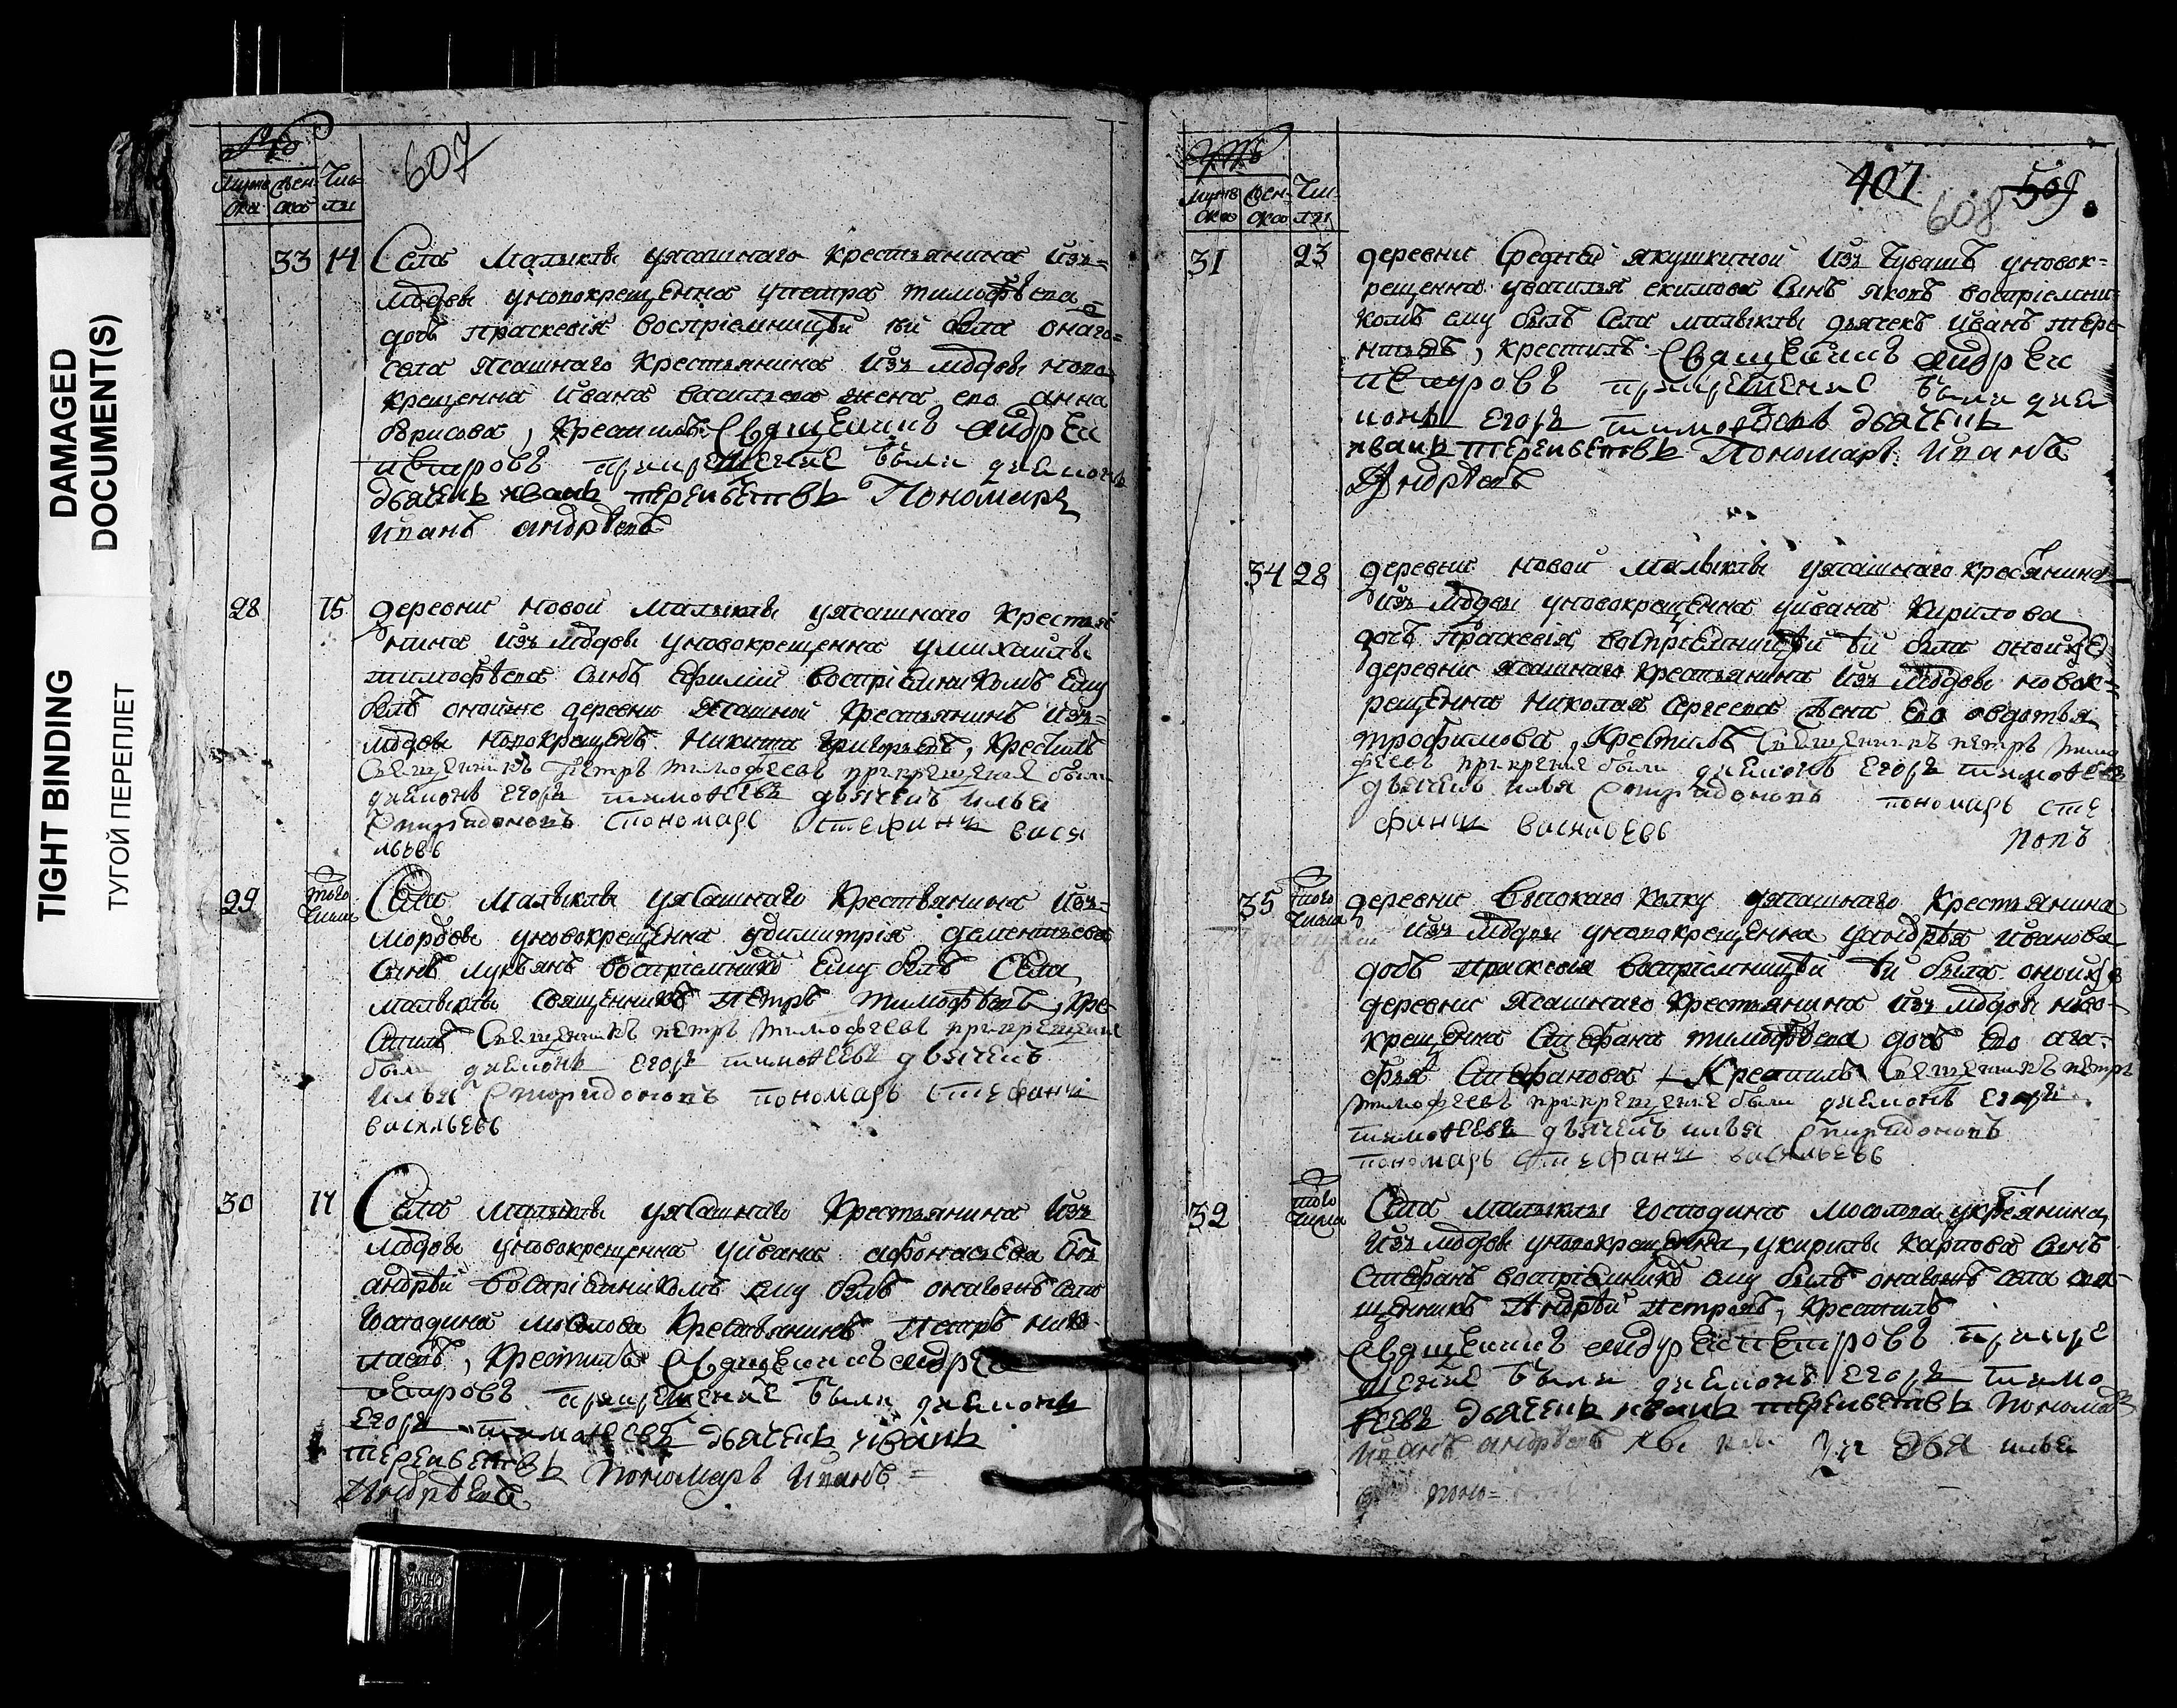 DAMAGED
DOCUMENT(S)
TIGHT BINDING
ТУГОЙ ПЕРЕПЛЕТ
607
33 14 Села Малыклы уясашнаго крестьянина изъ=
мордвы уновокрещенна упетра тимофѣева
дочь праскевія воспріемницей ей была онаго=
села ясашнаго крестьянина изъ мордвы ново
крещенна ивана васильева жена его анна
борисова, крестилъ Священникъ андреи
петровъ прикрещение были диаконъ
дьячекъ иванъ терентьевъ Пономарь
иванъ андрѣевъ
28 15 деревни новой малыклы уясашнаго крестья
нина изъ мордвы уновокрещенна умихаилы
тимофѣева сынъ Ефимій воспріемникомъ ему
былъ онойже деревни ясашной крестьянинъ изъ=
мордвы новокрещенъ никита григорьевъ, крестилъ
Священникъ петръ тимофеевъ прикрещении были
диаконъ егоръ тимофеевъ дьячекъ илья
Спиридоновъ пономарь Стефанъ васи
льевъ
29 того числа Села Малыклы уясашнаго крестьянина изъ=
мордвы уновокрещенна удимитрія дементьева
сынъ лукъянъ воспріемникъ ему былъ Села
малыклы священникъ петръ тимофѣевъ, кре
стилъ Священникъ петръ тимофеевъ прикрещении
были диаконъ егоръ тимофеевъ дьячекъ
илья Спиридоновъ пономарь Стефанъ
васильевъ
30 17 Села малыклы уясашнаго крестьянина изъ
мордвы уновокрещенна уивана афонасьева сынъ
андрѣй воспріемникомъ ему былъ онагожъ села
господина мосолова крестьянинъ петръ нико
лаевъ, крестилъ Священникъ андреи
петровъ прикрещение были диаконъ
егоръ тимофеевъ дьячекъ иванъ
терентьевъ Пономарь иванъ=
андрѣевъ
407 608 509.
31 23 деревни Средней якушкиной изъ чувашъ уновок=
рещенна увасилья екимова сынъ яковъ воспріемни
комъ ему былъ села малыклы дьячекъ иванъ тере
нтьевъ, крестилъ Священникъ андреи
петровъ прикрещение были диа
конъ егоръ тимофеевъ дьячекъ
иванъ терентьевъ Пономарь иванъ
андрѣевъ
34 28 деревни новой малыклы уясашнаго крестьянина
изъ мордвы уновокрещенна уивана кирилова
дочь праскевія воспріемницей ей была онойже
деревни ясашнаго крестьянина изъ мордвы новок=
рещенна николая сергеева жена его авдотья
трофимова, крестилъ Священникъ петръ тимо
феевъ прикрение были диаконъ егоръ тимофеевъ
дьячекъ илья Спиридоновъ пономарь Сте
фанъ васильевъ
попъ
35 того числа деревни высокаго колку уясашнаго крестьянина
изъ мордвы уновокрещенна уандрѣя иванова
дочь праскевія воспріемницей ей была онойже
деревни ясашнаго крестьянина изъ мордвы ново
крещенна Стефана тимофѣева дочь его ага=
фья Стефанова Крестилъ Священникъ петръ
тимофеевъ прикрещение были диаконъ егоръ
тимофеевъ дьячекъ илья Спиридоновъ
пономарь Стефанъ васильевъ
32 того числа Села малыклы господина мосолова укрестьянина
изъ мордвы уновокрещенна укирилы карпова сынъ
Стефанъ воспріемникъ ему былъ онагожъ села свя
щенникъ андрѣй петровъ, крестилъ
Священникъ андреи петровъ прикре
щение были диаконъ егоръ тимо
феевъ дьячекъ иванъ терентьевъ Пономарь
иванъ андрѣевъ дья илья
поно=